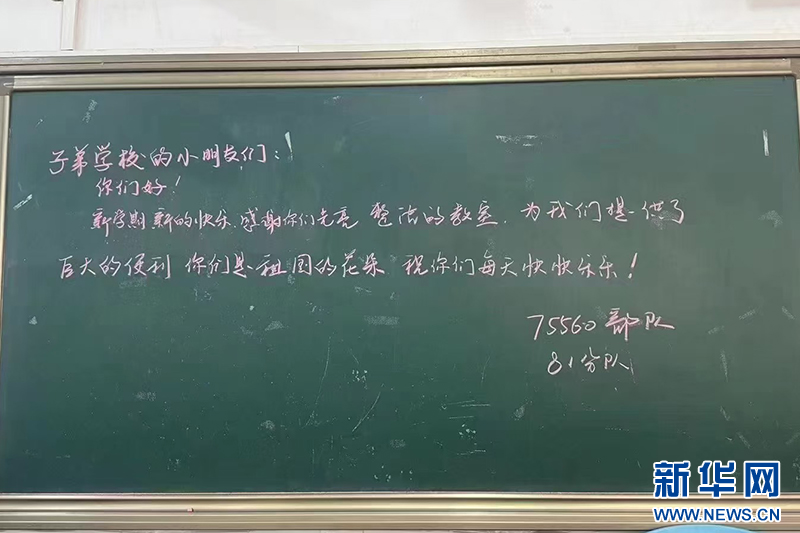 子弟学校的小朋友们：
你们好！
新学期 新的快乐，感谢你们光亮 整洁的教室，为我们提供了
巨大的便利 你们是祖国的花朵 祝你们每天快快乐乐！
75560部队
81分队
新华网
WWW.NEWS.CN